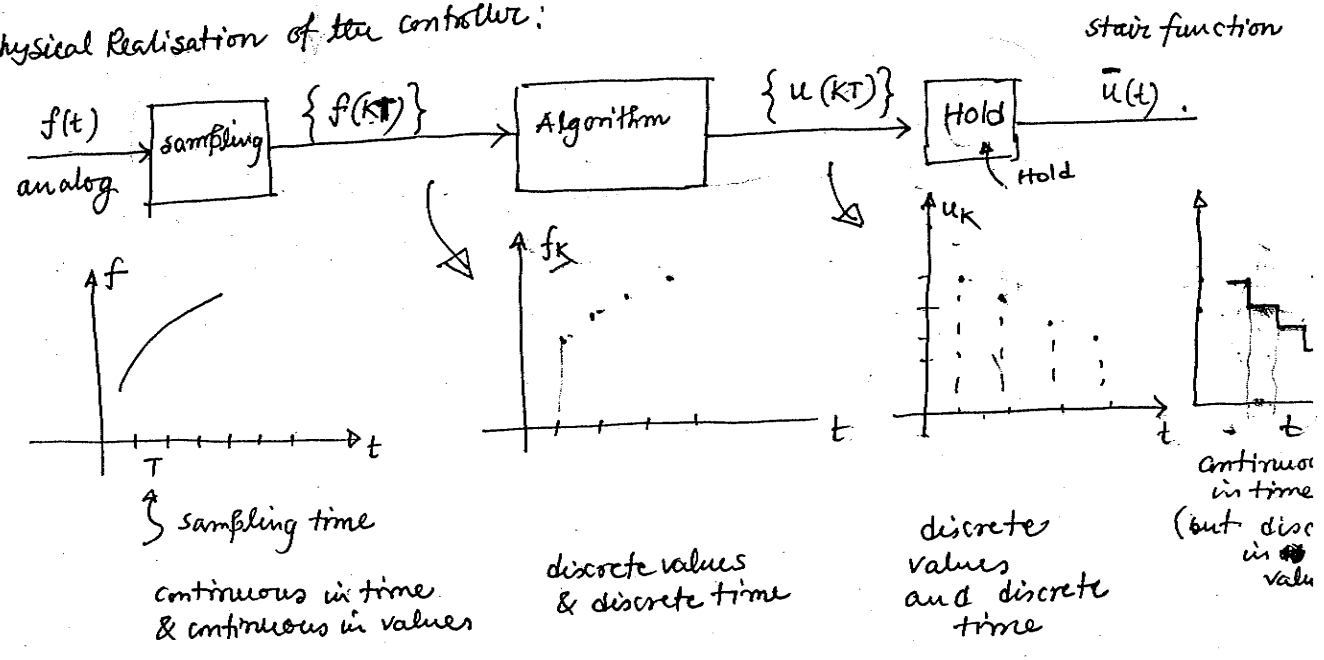 hysical Realisation of the controller:
stair function
f(t)
analog
sampling
{f(KT)}
Algorithm
{u(KT)}
Hold
ū(t).
Hold
f
T
t
sampling time
continuous in time
& continuous in values
fK
t
discrete values
& discrete time
uK
t
discrete
values
and discrete
time
t
continuo
in time
(but disc
in
valu